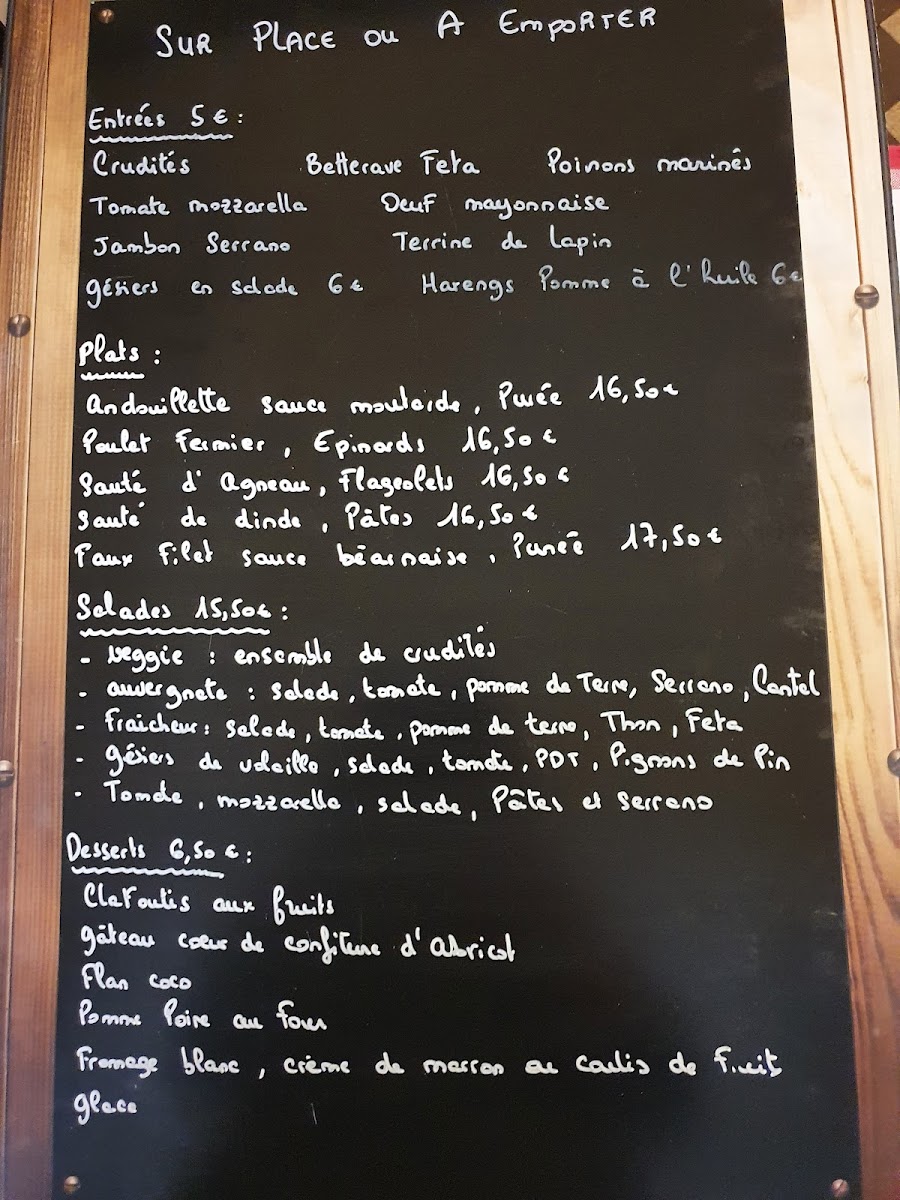 SUR PLACE OU A EMPORTER
Entrées 5€ :
Crudités Betterave Feta Poivrons marinés
Tomate mozzarella Oeuf mayonnaise
Jambon Serrano Terrine de lapin
gésiers en salade 6€ Harengs Pomme à l'huile 6€
Plats :
Andouillette sauce moutarde, Purée 16,50€
Poulet Fermier, Epinards 16,50€
Sauté d'Agneau, Flageolets 16,50€
Sauté de dinde, Pâtes 16,50€
Faux Filet sauce béarnaise, Purée 17,50€
Salades 15,50€ :
- veggie : ensemble de crudités
- auvergnate : salade, tomate, pomme de Terre, Serrano, Cantal
- fraicheur : salade, tomate, pomme de terre, Thon, Feta
- gésiers de volaille, salade, tomate, PDT, Pignons de Pin
- Tomate, mozzarella, salade, Pâtes et serrano
Desserts 6,50€ :
Clafoutis aux fruits
gâteau coeur de confiture d'Abricot
Flan coco
Pomme Poire au four
Fromage blanc, crème de marron ou coulis de fruit
glace